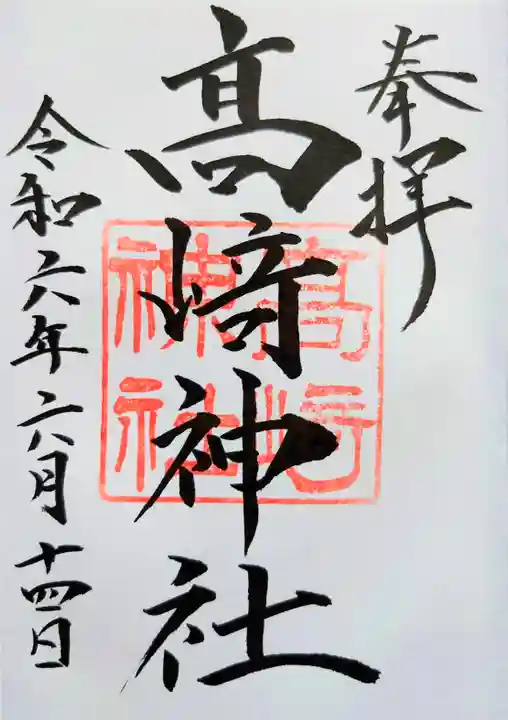 奉拝
髙﨑神社
髙﨑
神社
令和六年六月十四日